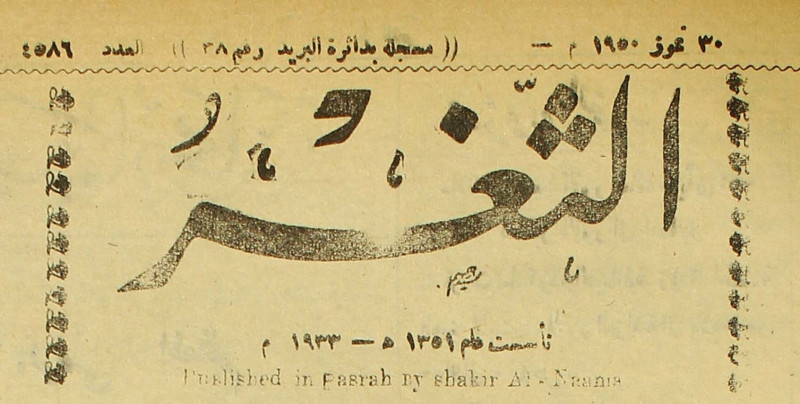 ٣٠ تموز ١٩٥٠ م — (( مسجلة بدائرة البريد رقم ٣٨ )) العدد ٤٥٨٦
الثَّغْر
تأسست عام ١٣٥١ ه — ١٩٣٣ م
Published in Basrah By shakir Al - Naama